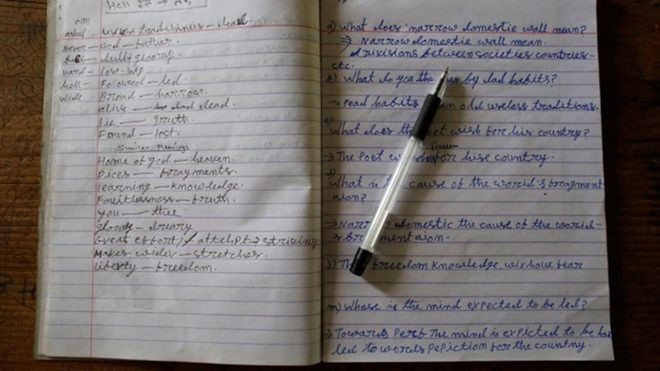 Hell
om
asked - useless traditions - dead
never - God - father
dully gloomy
hard - lose - way
hell - Followed - led
wide - Broad - narrow
alive - dead
Lie - truth
Found - lost
Home of god - heaven
Pices - fragments
learning - knowledge
Fruitlessness - truth
you - thee
gloomy - dreary
Great effort / attempt → striving
Makes wider - stretches
liberty - freedom.
a) What does narrow domestic wall mean?
→ Narrow domestic wall mean
Divisions between societies countries
etc.
b) What do you by dad habits?
→ Pead habits old useless traditions.
What does the poet wish for his country?
→ The Poet for his country.
What is the cause of the world's fragment
ation?
→ Narrow domestic the cause of the world
s fragmentation.
freedom knowledge without fear
m) Whose is the mind expected to be led?
→ Towards Perf the mind is expicted to be
led towords pefiction for the country.